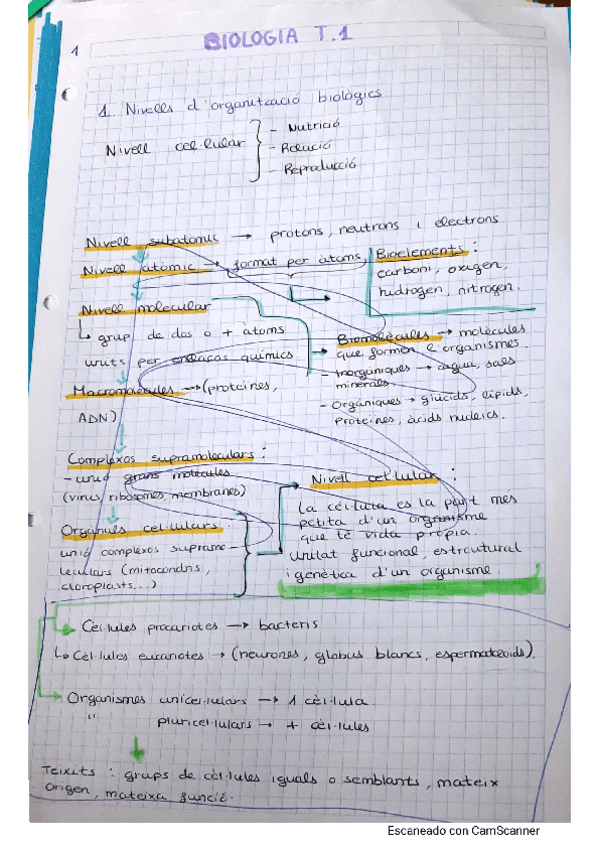 1
BIOLOGIA T.1
1. Nivells d'organització biològics
Nivell cel·lular
- Nutrició
- Relació
- Reproducció
Nivell subatòmic → protons, neutrons i electrons
Nivell atòmic → format per àtoms,
Bioelements :
carboni, oxigen,
hidrogen, nitrogen.
Nivell molecular
↳ grup de dos o + àtoms
units per enllaços químics
→ Biomolècules → molècules
que formen l'organismes.
- Inorgàniques → aigua, sals
minerals.
- Orgàniques → glúcids, lípids,
proteïnes, àcids nucleics.
Macromolècules → (proteïnes,
ADN)
Complexos supramoleculars :
- unió grans molècules
(virus, ribosomes, membranes)
Orgànuls cel·lulars :
unió complexos supramo-
leculars (mitocondris,
cloroplasts,...)
Nivell cel·lular :
la cèl·lula es la part mes
petita d'un organisme
que té vida pròpia.
Unitat funcional, estrcutural
i genètica d'un organisme
Cèl·lules procariotes → bacteris
↳ Cèl·lules eucariotes → (neurones, globus blancs, espermatozoids).
Organismes unicel·lulars → 1 cèl·lula
" pluricel·lulars → + cèl·lules
Teixits : grups de cèl·lules iguals o semblants, mateix
origen, mateixa funció.
Escaneado con CamScanner